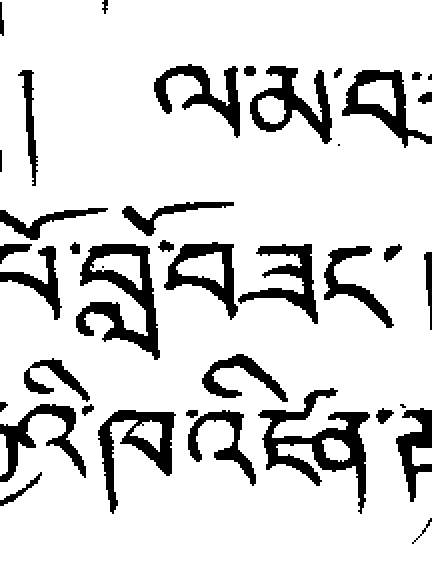 ། ལ་མ་བ
པོ་བློ་བཟང་།
འི་ཁ་འཛིན་